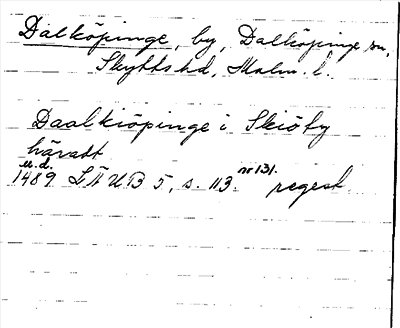 Dalköpinge, by, Dalköpinge sn,
Skytts hd, Malm. l.
Daalkiöpinge i Skiöty
häratt
u.d.
1489 LÄUB 5, s. 113 nr 131. regest